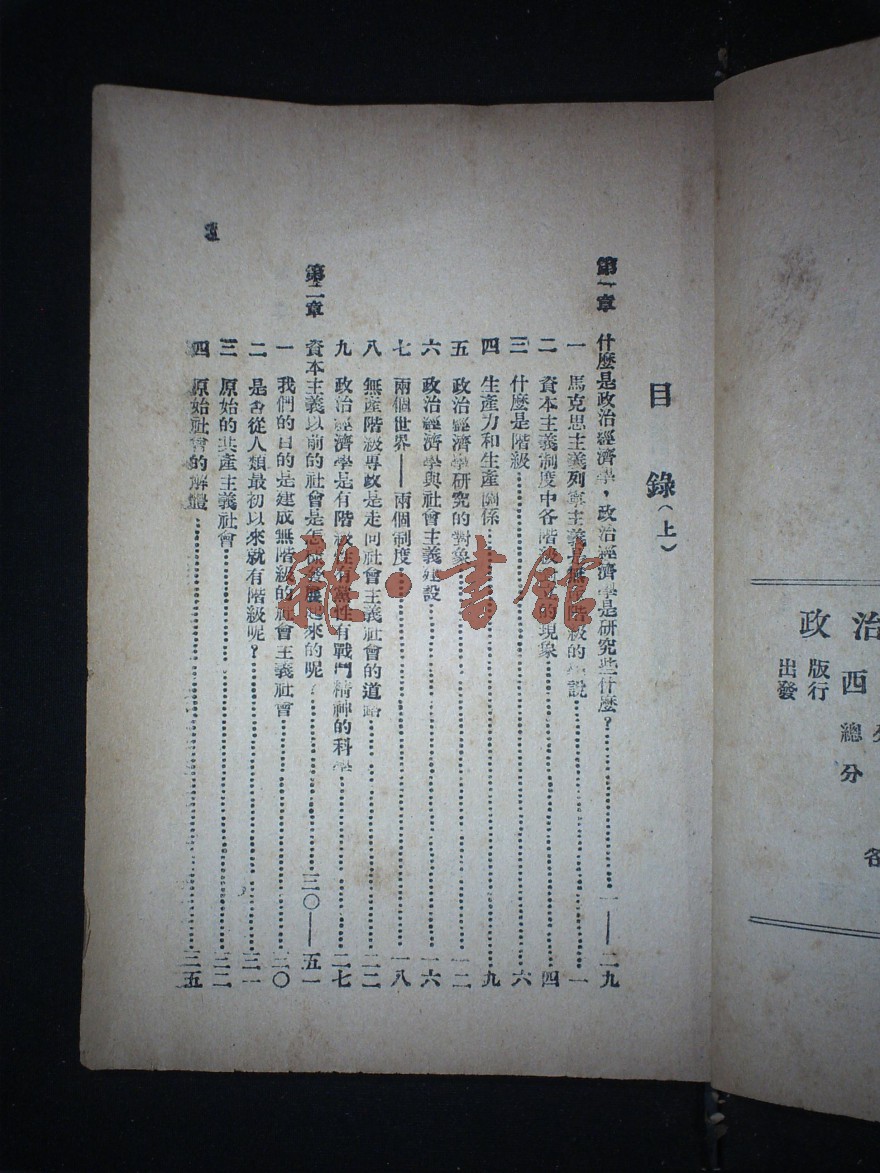 目錄(上)
第一章 什麼是政治經濟學,政治經濟學是研究些什麼?……一——二九
一 馬克思主義列寧主義 無 階級的 說……一
二 資本主義制度中各階級 的現象……四
三 什麼是階級……六
四 生產力和生產關係……九
五 政治經濟學研究的對象……一二
六 政治經濟學與社會主義建設……一六
七 兩個世界——兩個制度……一八
八 無產階級專政是走向社會主義社會的道路……二二
九 政治經濟學是有階級性有黨性有戰鬥精神的科學……二七
第二章 資本主義以前的社會是怎樣發展起來的呢?……三〇——五一
一 我們的目的是建成無階級的社會主義社會……三〇
二 是否從人類最初以來就有階級呢?……三一
三 原始的共產主義社會……三二
四 原始社會的解體……三五
雜·書館
政治
西
出版
發行
總
分
各